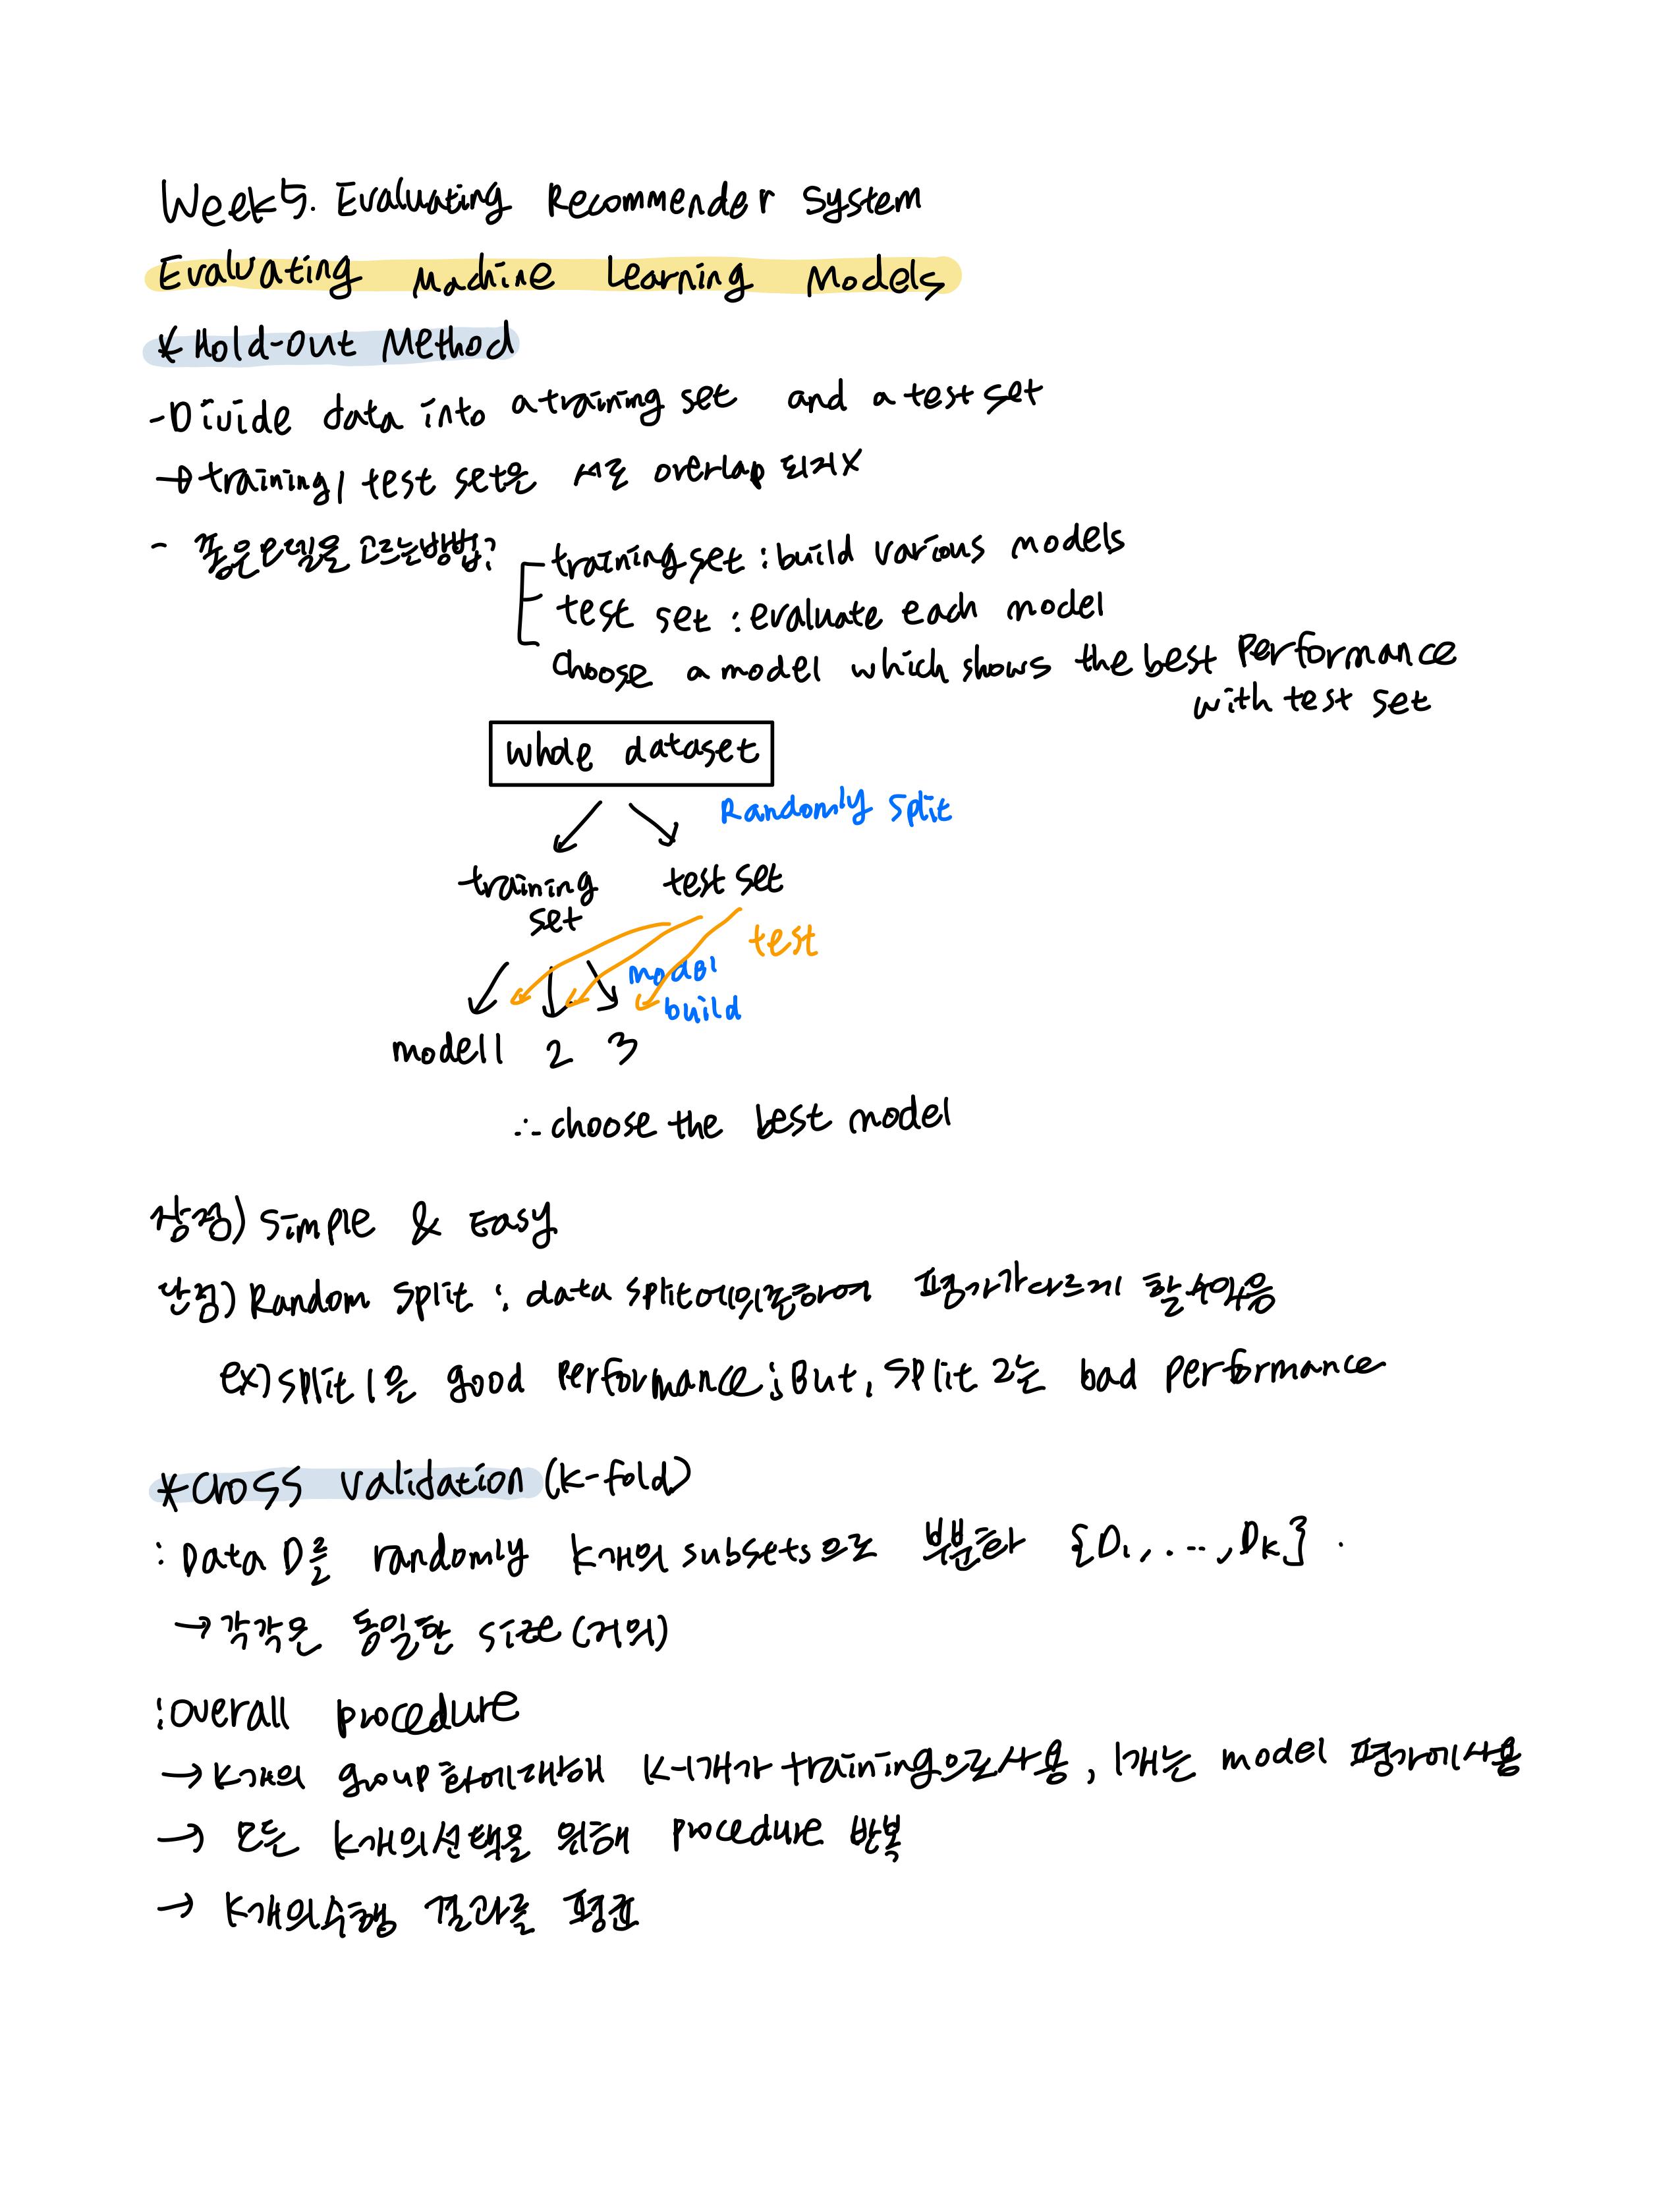 Week 5. Evaluating Recommender System
Evaluating Machine Learning Models
* Hold-Out Method
- Divide data into a training set and a test set
→ training, test set은 서로 overlap 되지 X
- 좋은 모델을 고르는 방법?
training set : build various models
test set : evaluate each model
choose a model which shows the best performance
with test set
whole dataset
Randomly split
training test set
set
test
model
build
model 1 2 3
∴ choose the best model
장점) simple & Easy
단점) Random split : data split에 의존하여 평가가 다르게 할 수 있음
ex) split 1은 good performance; But, split 2는 bad performance
* Cross validation (K-fold)
: Data D를 randomly K개의 subsets으로 부분화 {D1, ..., DK}.
→ 각각은 동일한 size (거의)
: overall procedure
→ K개의 group화에 대해 K-1개가 training으로 사용, 1개는 model 평가에 사용
→ 모든 K개의 선택을 위해 procedure 반복
→ K개의 수행 결과를 평균